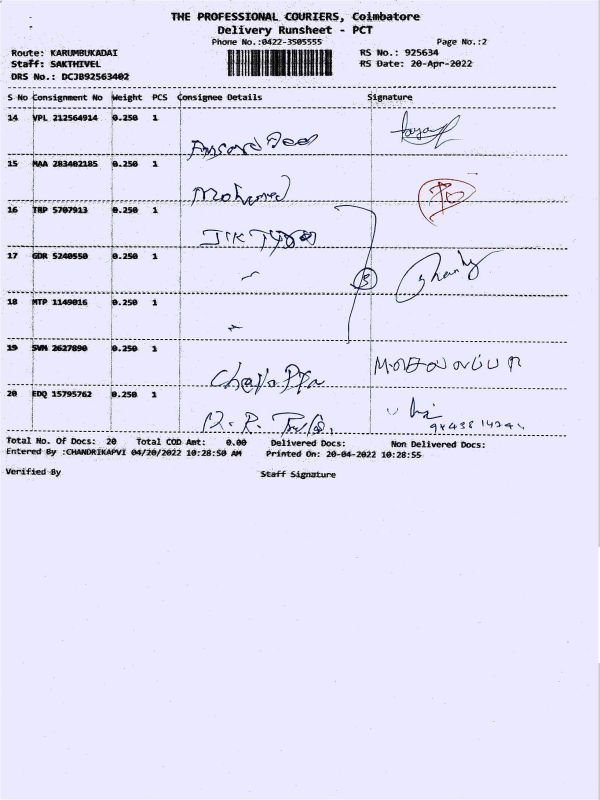 THE PROFESSIONAL COURIERS, Coimbatore
Delivery Runsheet - PCT
Phone No.:0422-3505555
Page No.:2
Route: KARUMBUKADAI
RS No.: 925634
Staff: SAKTHIVEL
RS Date: 20-Apr-2022
DRS No.: DCJB92563402
S No Consignment No Weight PCS Consignee Details Signature
14 VPL 212564914 0.250 1
15 MAA 283402185 0.250 1 Mohamed
16 TRP 5707913 0.250 1
17 GDR 5240550 0.250 1
3
18 MTP 1149016 0.250 1
19 SVM 2627890 0.250 1
20 EDQ 15795762 0.250 1
Total No. Of Docs: 20 Total COD Amt: 0.00 Delivered Docs: Non Delivered Docs:
Entered By :CHANDRIKAPVI 04/20/2022 10:28:50 AM Printed On: 20-04-2022 10:28:55
Verified By Staff Signature